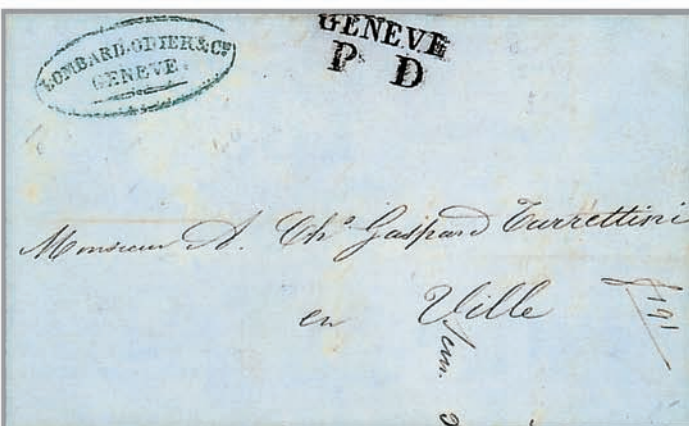 LOMBARD.ODIER & Cᴵᴱ
GENEVE.
GENEVE
P D
Monsieur A. Chˢ Gaspard Turrettini
en Ville